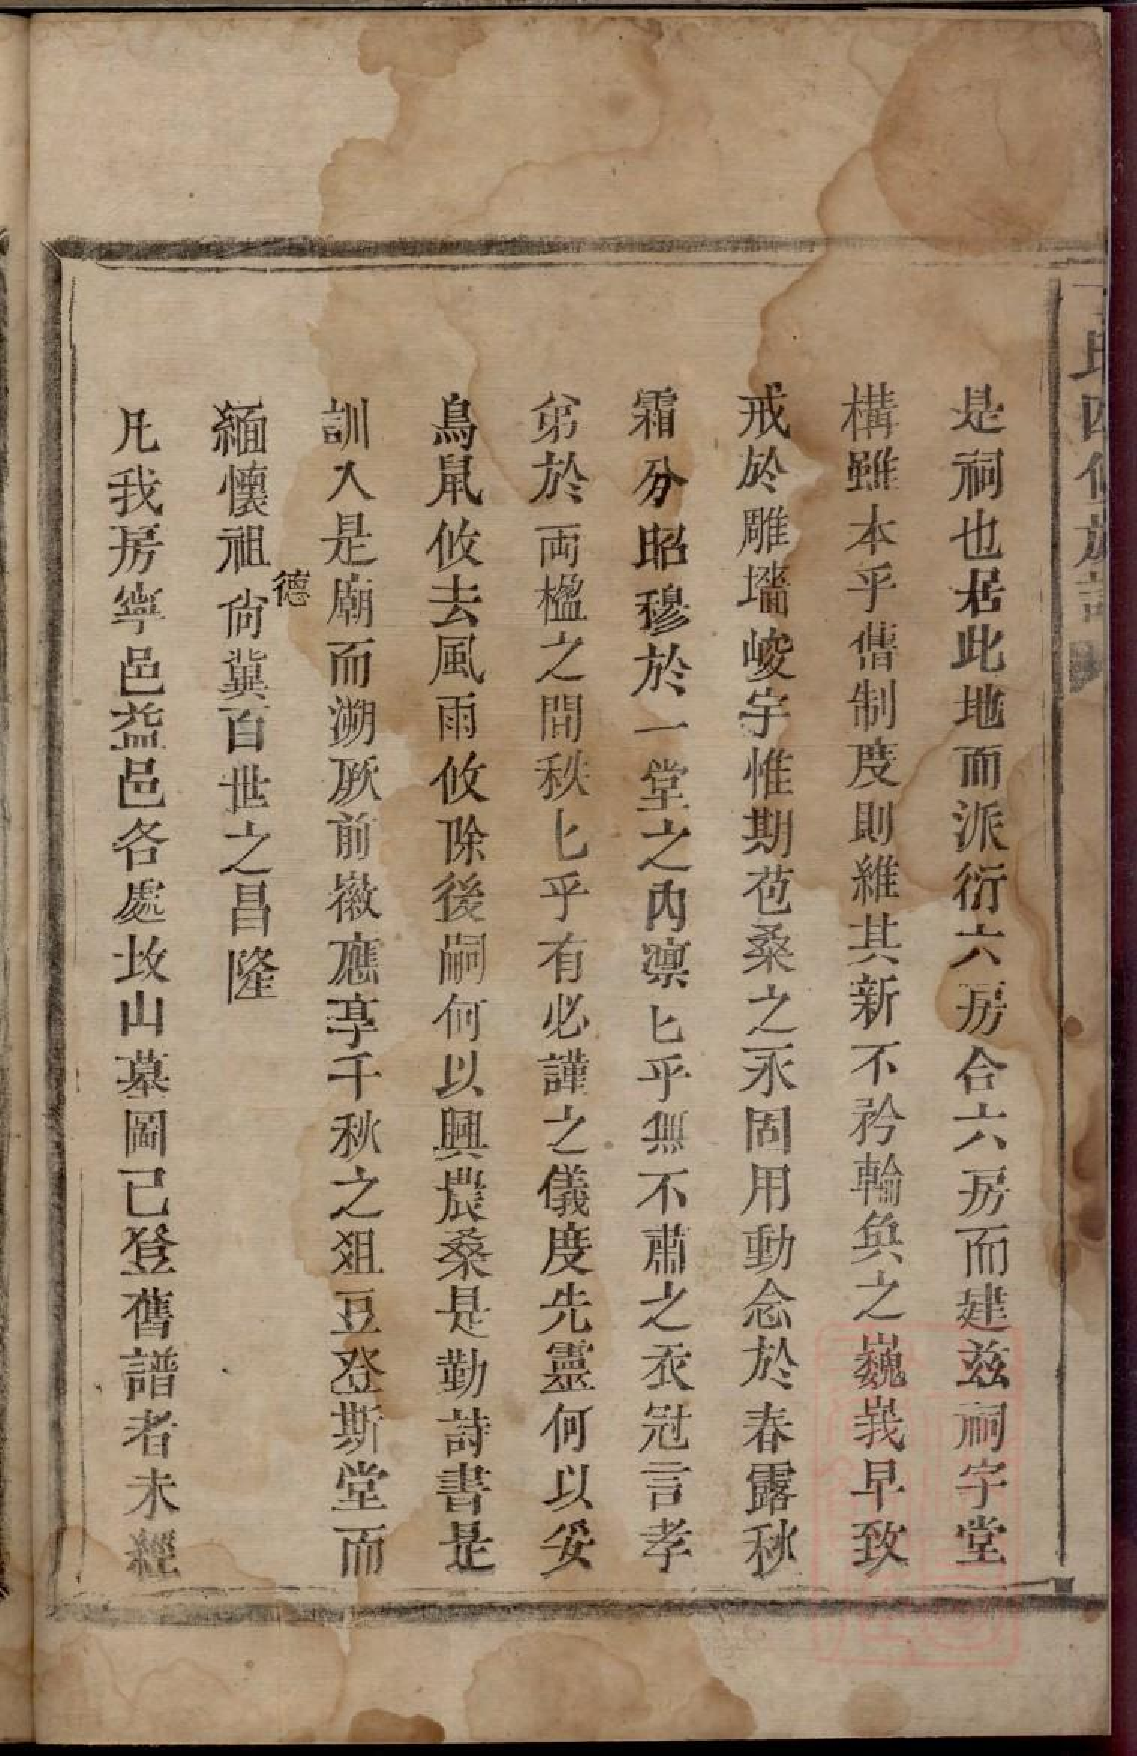 是祠也居此地而派衍六房合六房而建兹祠宇堂
構雖本乎舊制度則維其新不矜輪奐之巍峩早致
戒於雕墻峻宇惟期苞桑之永固用動念於春露秋
霜分昭穆於一堂之內凛匕乎無不肅之衣冠言孝
弟於両楹之間秋匕乎有必謹之儀度先靈何以妥
鳥鼠攸去風雨攸除後嗣何以興農桑是勤詩書是
訓入是廟而溯厥前徽應享千秋之俎豆登斯堂而
緬懷祖德尙冀百世之昌隆
凡我房寧邑益邑各處坟山墓圖已登舊譜者未經
氏四修族譜